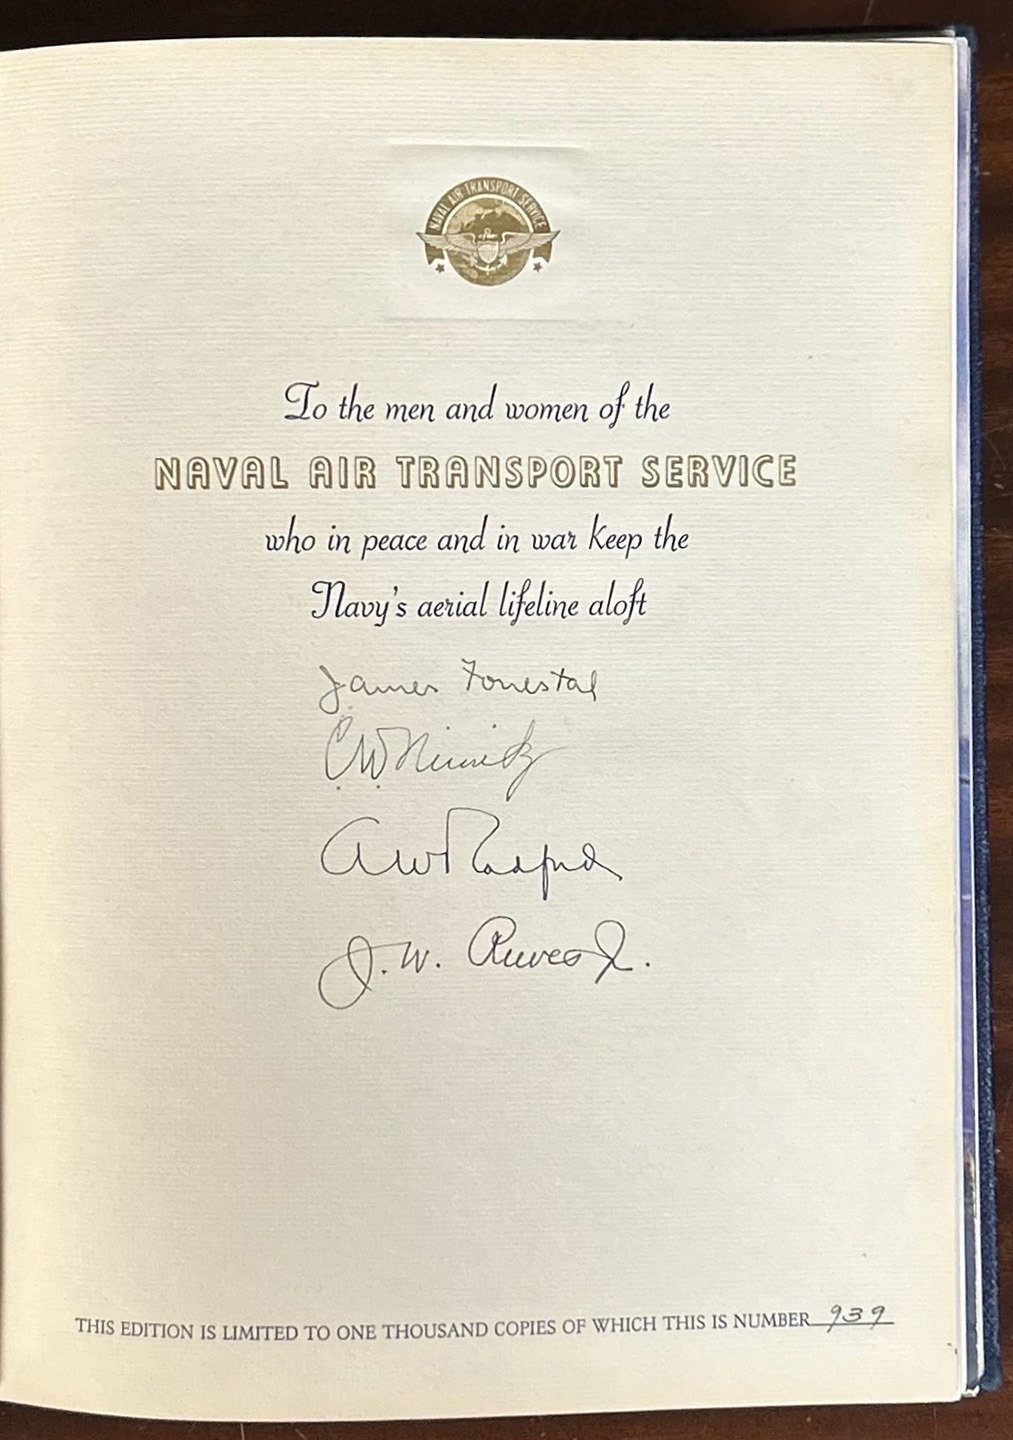 NAVAL AIR TRANSPORT SERVICE
To the men and women of the
NAVAL AIR TRANSPORT SERVICE
who in peace and in war keep the
Navy's aerial lifeline aloft
James Forrestal
C W Nimitz
A W Radford
J. W. Reeves Jr.
THIS EDITION IS LIMITED TO ONE THOUSAND COPIES OF WHICH THIS IS NUMBER 939